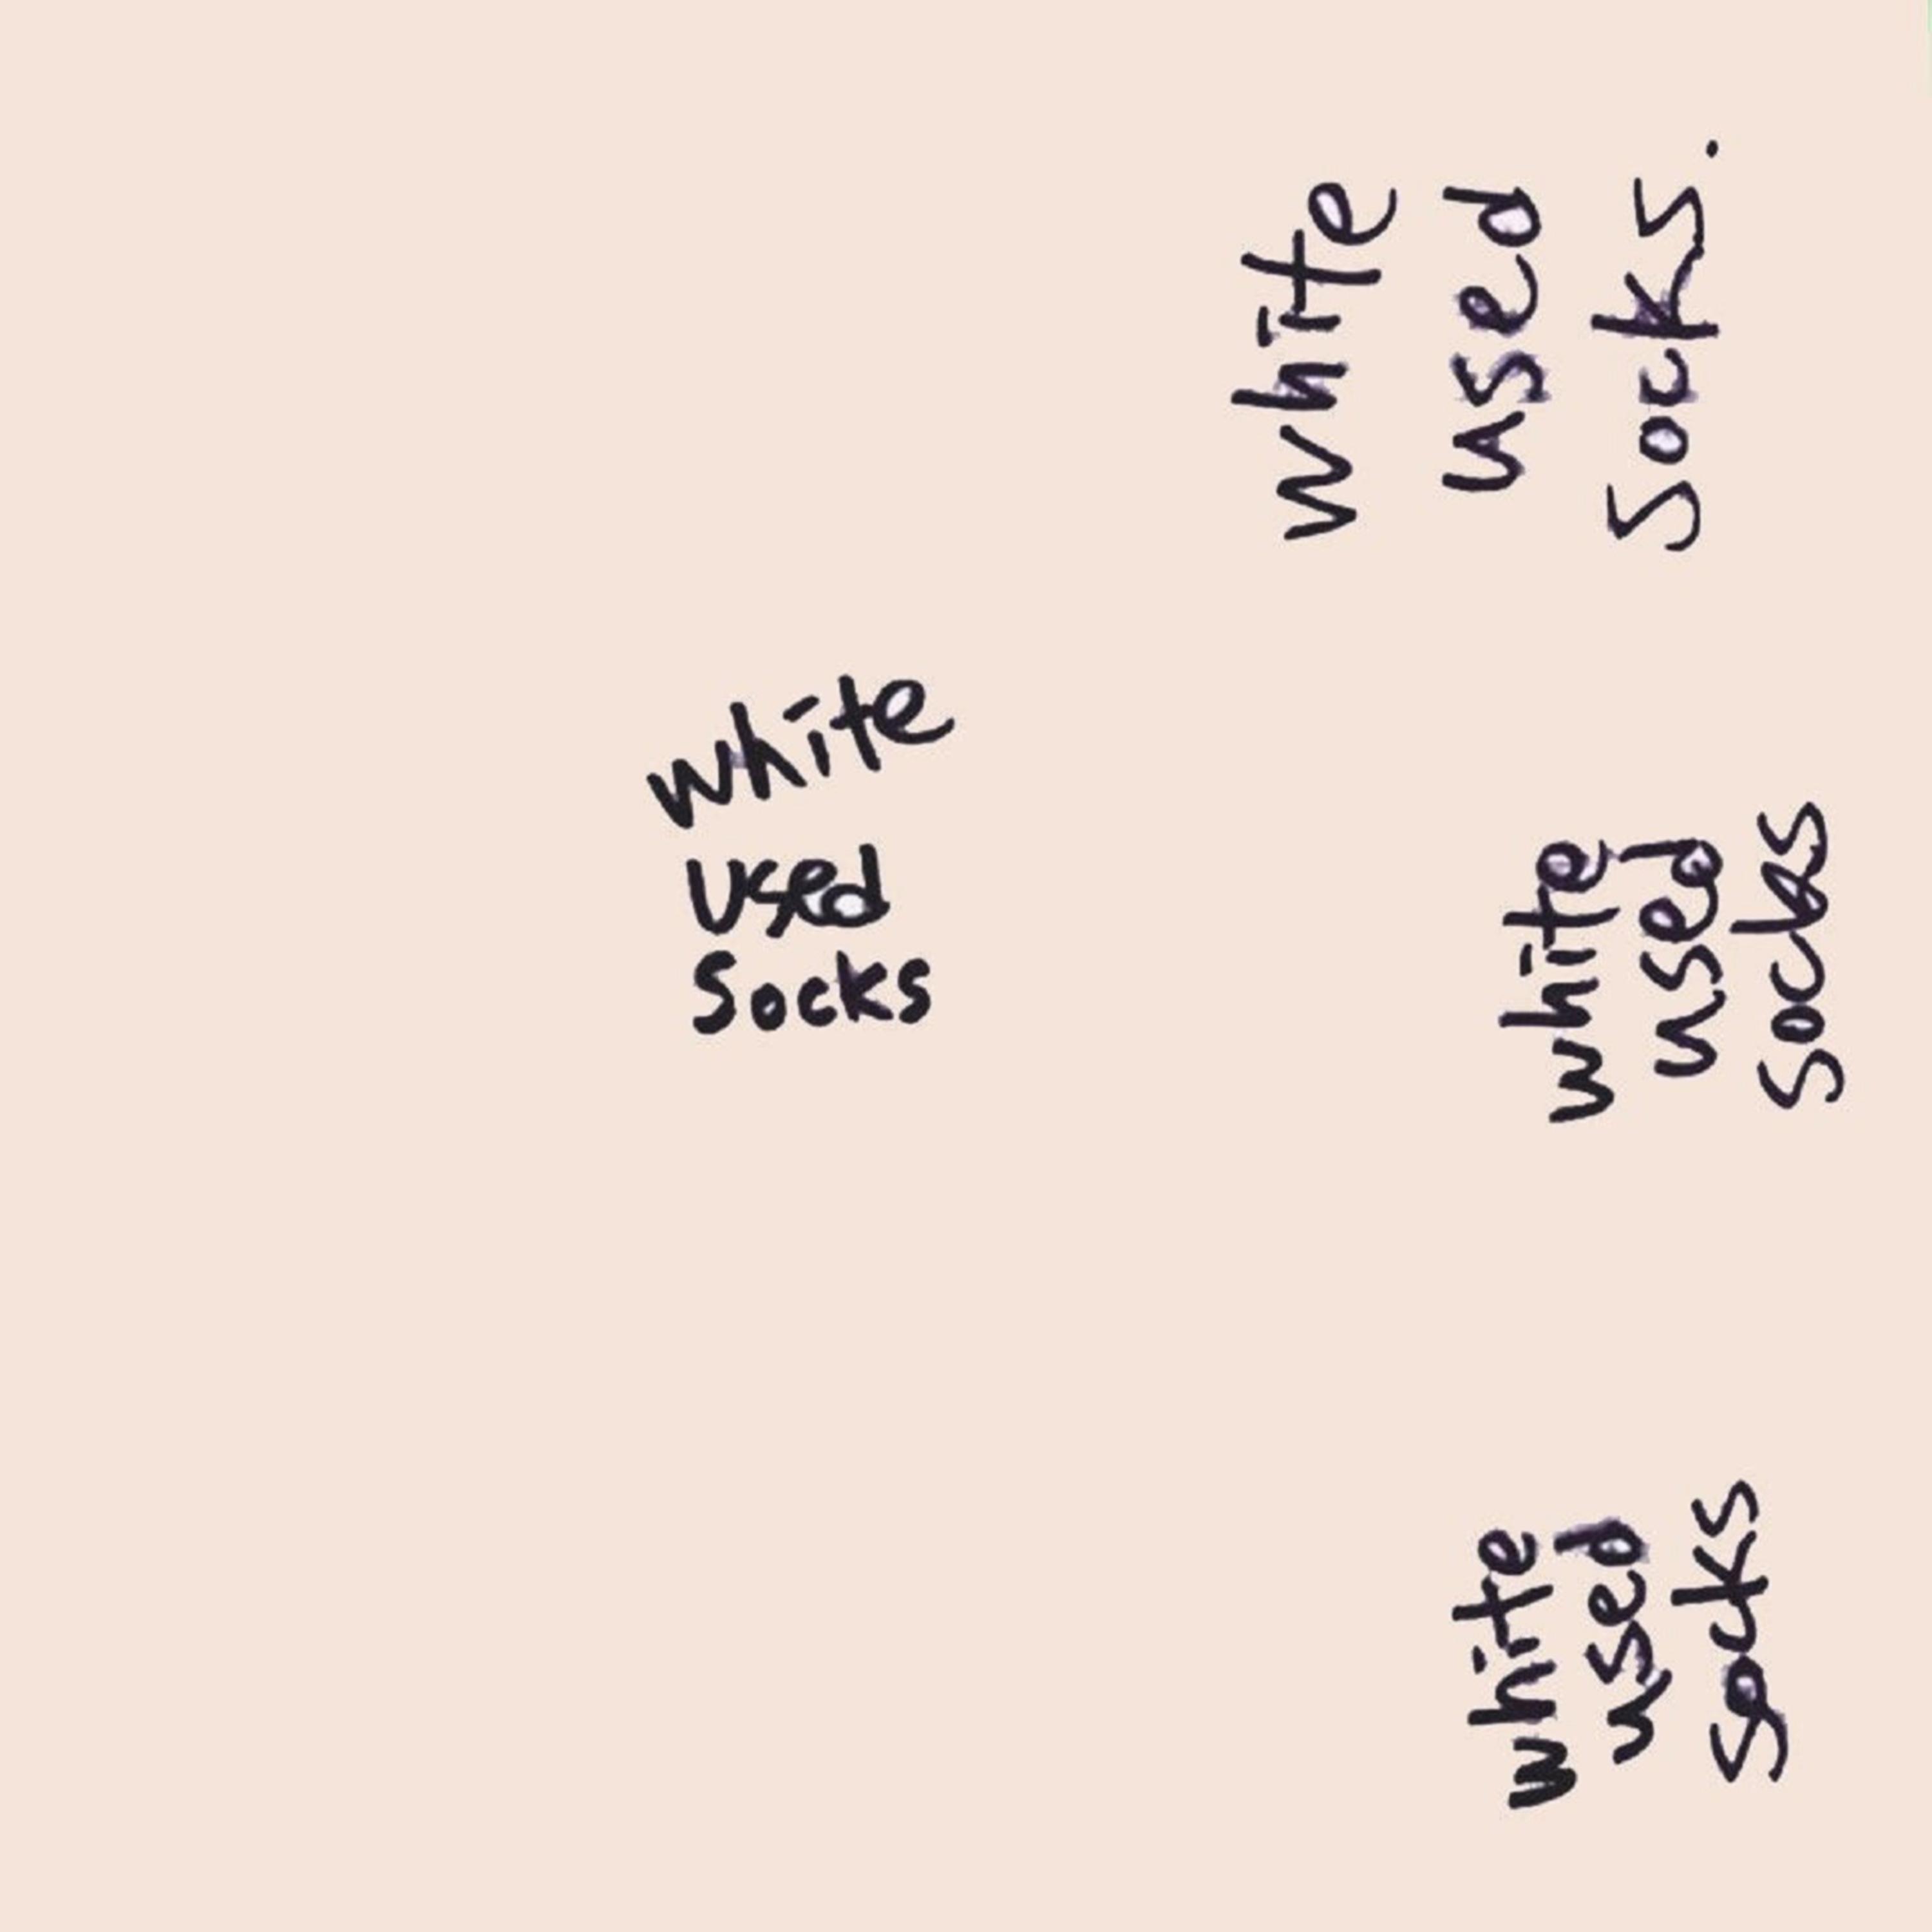 white
used
socks.
white
Used
Socks
white
used
socks
white
used
socks